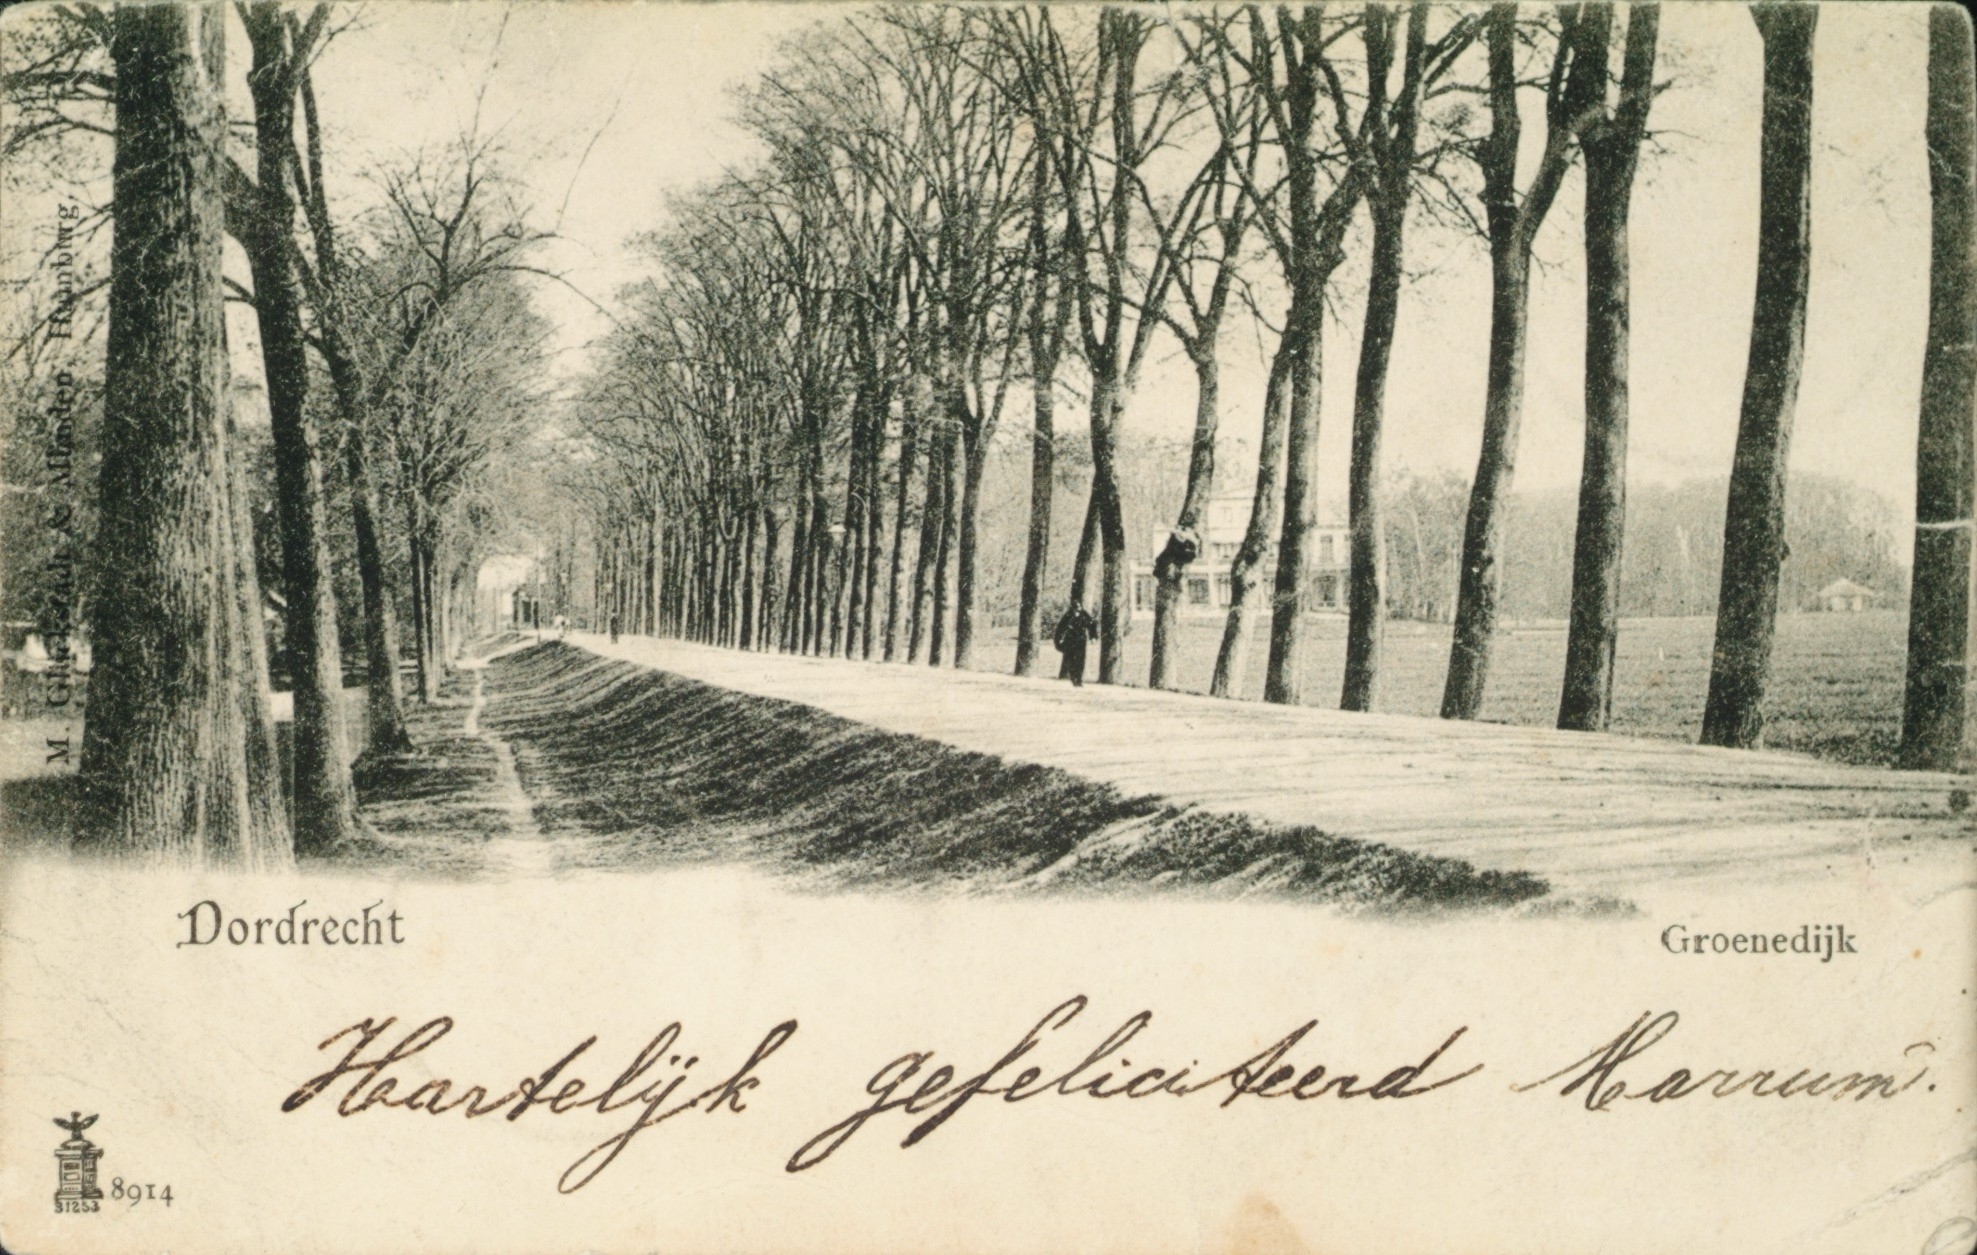 M. Glückstadt & Münden, Hamburg.
Dordrecht
Groenedijk
Hartelijk gefeliciteerd
31253
8914